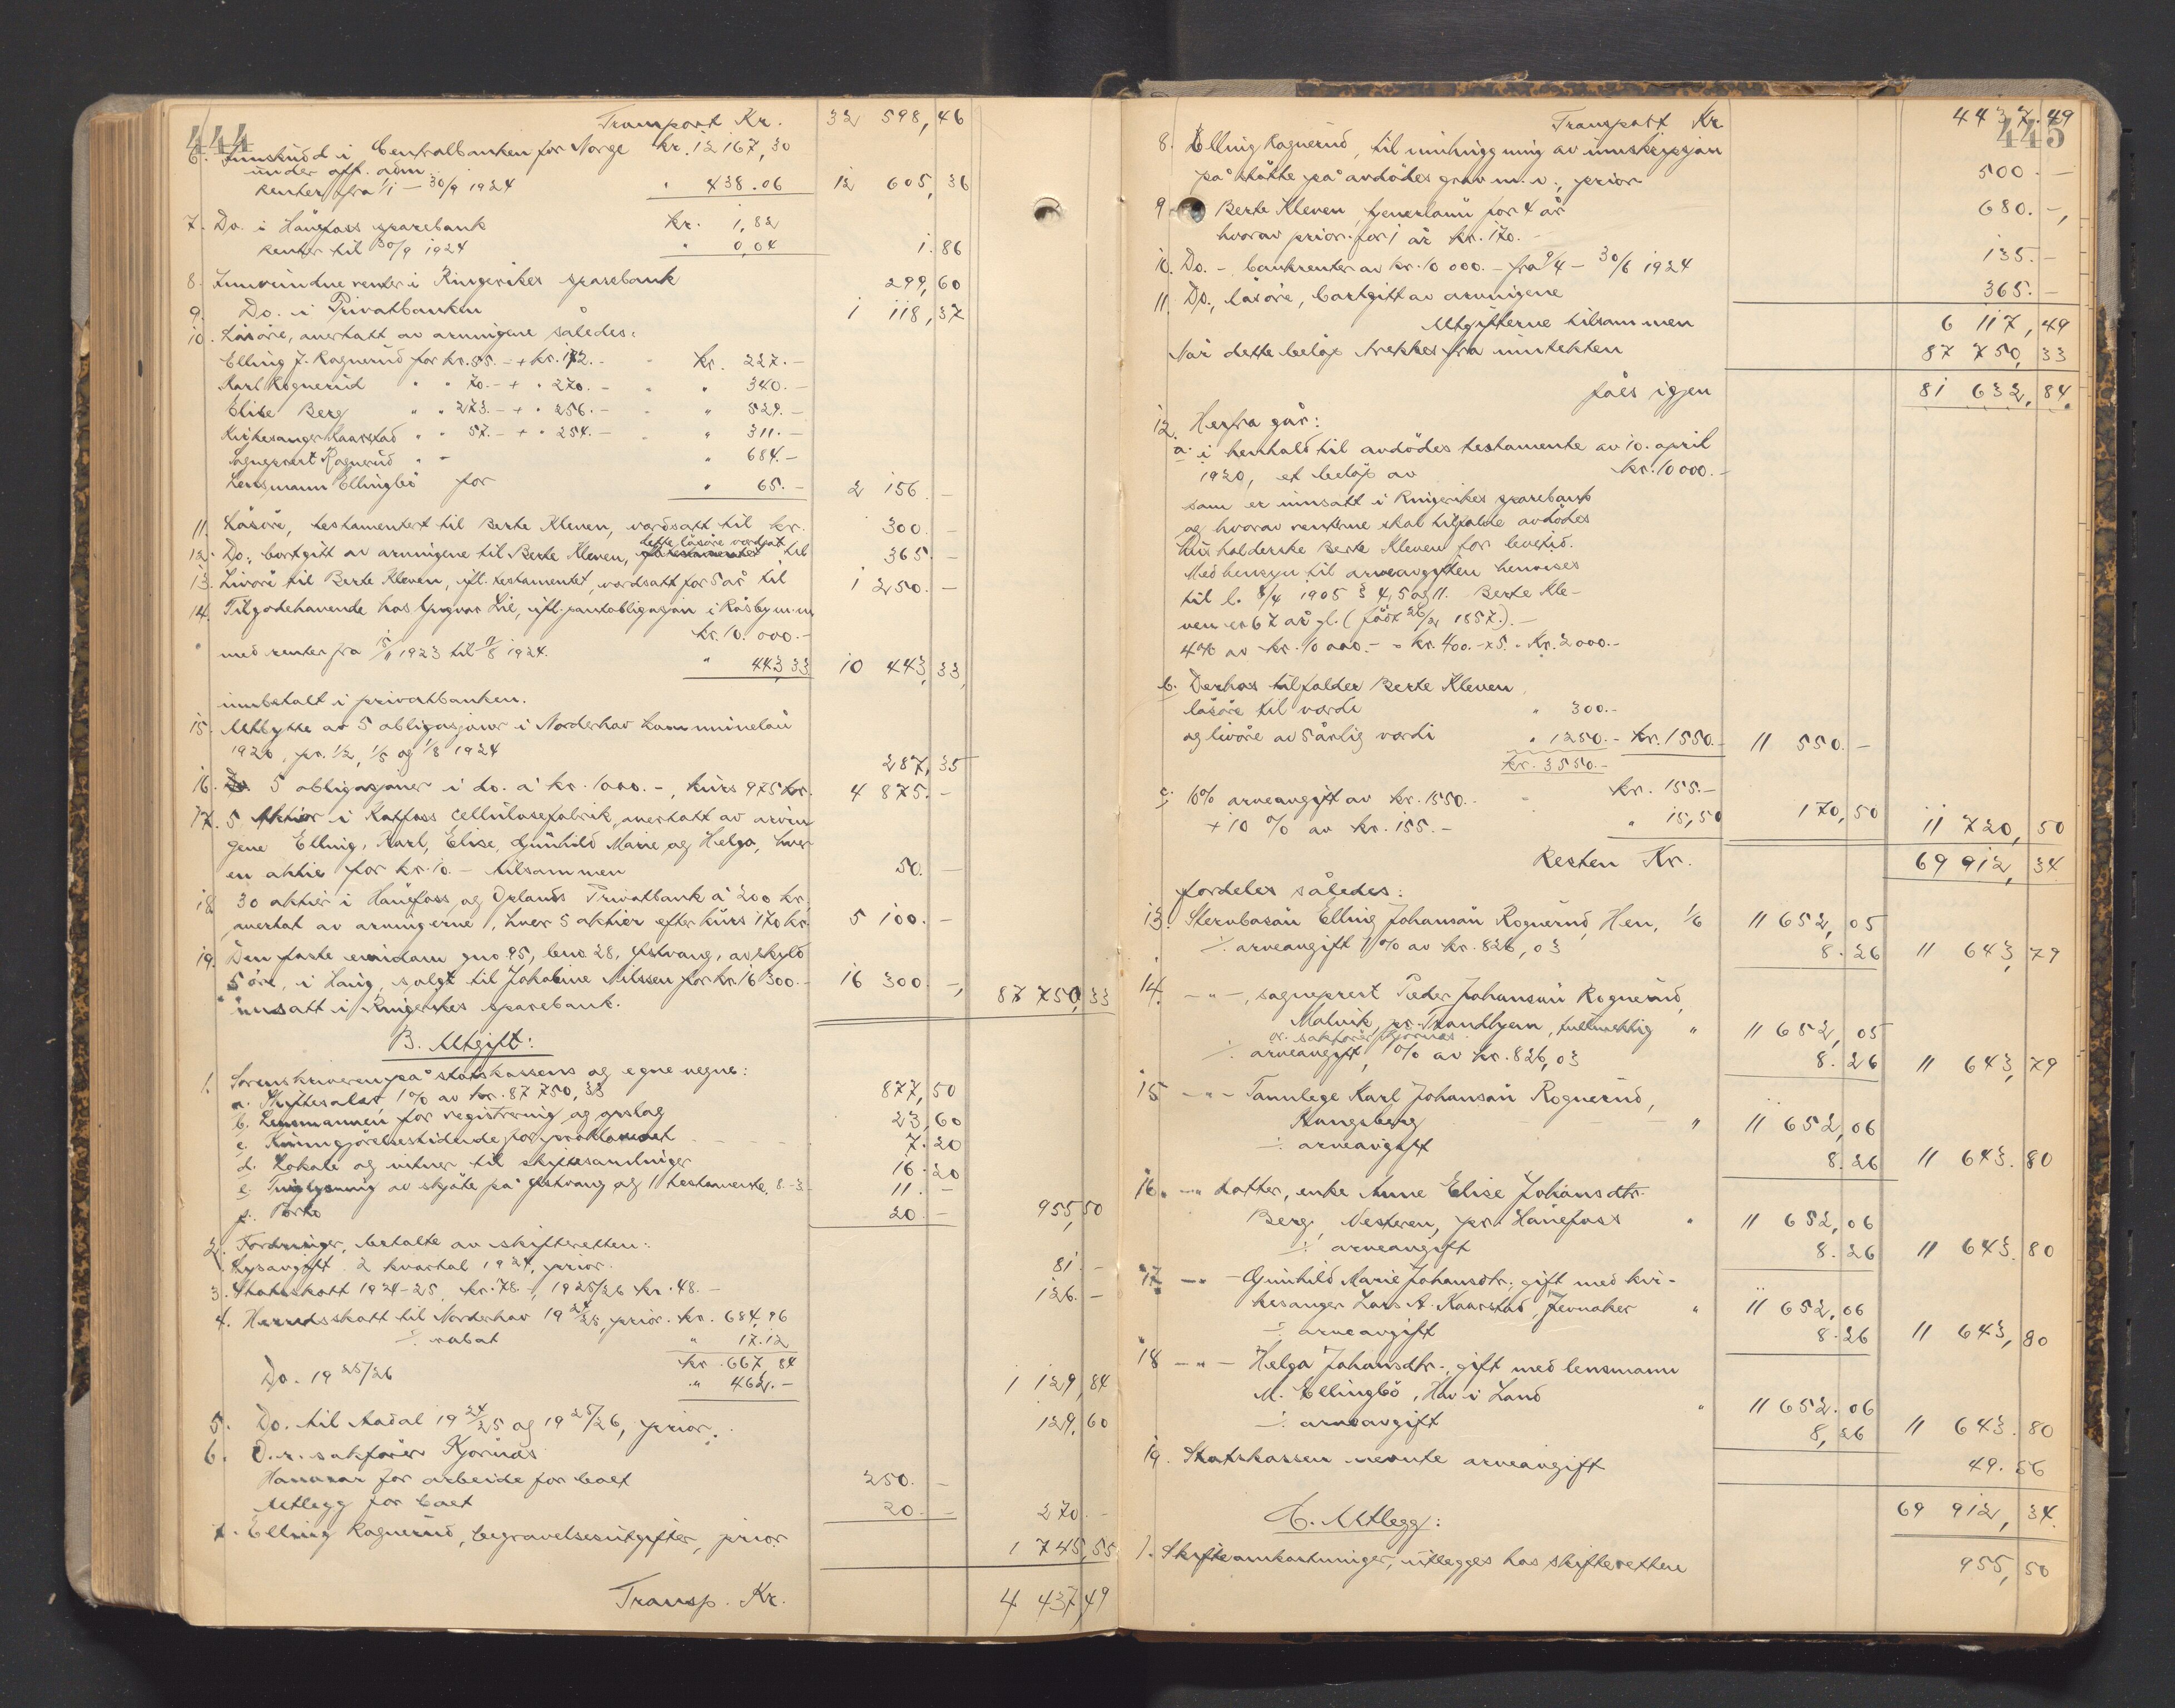 444
Transport Kr. 32 598,46
6. Innskudd i Centralbanken for Norge kr. 12 167,30
under off. adm.
renter fra 1/1 – 30/9 1924 " 438.06 12 605,36
7. Do. i Hønefoss sparebank Kr. 1,82
renter til 30/9 1924 " 0,04 1.86
8. Innvundne renter i Ringerikes sparebank 299,60
9. Do. i Privatbanken 1 118,37
10. Løsøre, overtatt av arvingene således:
Elling J. Rognerud for kr. 55.- + kr. 172.- Kr. 227.-
Karl Rognerud " " 70.- + " 270.- " 340.-
Elise Berg " " 273.- + " 256.- " 529.-
Kirkesanger Kaarstad " " 57.- + " 254.- " 311.-
Sogneprest Rognerud " - " 684.-
Lensmann Ellingbö for " 65.- 2 156.-
11. Løsøre, testamentert til Berte Kleven, verdsatt til kr. 300.-
12. Do., bortgitt av arvingene til Berte Kleven, dette løsøre verdsat til 365.-
13. Livøre til Berte Kleven, ifl. testamentet, verdsatt for 5 år til 1 250.-
14. Tilgodehavende hos Gunnar Lie, ifl. pantobligasjon i Råsby m.m. kr. 10.000.-
med renter fra 15/11 1923 til 9/8 1924. " 443,33 10 443,33
innbetalt i privatbanken.
15. Utbytte av 5 obligasjoner i Norderhov kommunelån
1920, pr. 1/2, 1/5 og 1/8 1924 287,35
16. 5 obligasjoner i do. a kr. 1000.-, kurs 975 kr. 4 875.-
17. 5 Aktier i Katfoss cellulosefabrik overtatt av arvin
gene Elling, Karl, Elise, Gunhild Marie og Helga, hver
en aktie for kr. 10.- tilsammen 50.-
18. 30 aktier i Hønefoss og Oplands Privatbank a 200 kr,
overtat av arvingerne, hver 5 aktier efter kurs 170 kr. 5 100.-
19. Den faste eiendom gno 95, bno. 28, Østvang, av skyld
5 øre, i Haug, solgt til Johabine Nilssen for kr. 16 300.- 16 300.-, 87 750,33
innsatt i Ringerikes sparebank.
B. Utgift:
1. Sorenskriveren på statskassens og egne vegne:
a. Skiftesalær, 1% av kr. 87 750,33 877,50
b. Lensmannen for registrering og opslag 23,60
c. Kunngjørelsestidende for proklamaet 7.20
d. Lokale og vitner til skiftesamlinger 16.20
e. Tinglysning av skjøte på Østvang og 11 testamente, 8.-3.- 11.-
f. Porto 20.- 955,50
2. Fordringer, betalte av skifteretten:
Lysavgift 2 kvartal 1924, prior. 81.-
3. Statsskatt 1924-25, kr. 78.-, 1925/26 kr. 48.- 126.-
4. Herredsskatt til Norderhov 1924/25, prior. kr. 684,96
÷ rabat " 17.12
kr. 667,84
Do. 1925/26 " 462.- 1 129,84
5. Do. til Aadal 1924/25 og 1925/26, prior. 129,60
6. O.r. sakfører Kjørnæs
Honorar for arbeide for boet 250.-
Utlegg for boet 20.- 270.-
7. Elling Rognerud, begravelsesutgifter, prior 1 745,55
Transp. Kr. 4 437,49
445
Transport Kr 4437.49
8. Elling Rognerud, til innhugging av innskripsjon
på støtte på avdødes grav m.v., prior 500.-
9. Berte Kleven, tjenerlønn for 4 år 680.-,
hvorav prior. for 1 år kr. 170.-
10. Do. - bankrenter av kr. 10 000.- fra 9/4 – 30/6 1924 135.-
11. Do., løsøre, bortgitt av arvingene 365.-
Utgifterne tilsammen 6 117,49
Når dette beløp trekkes fra inntekten 87 750,33
fåes igjen 81 632,84.
12. Herfra går:
a. i henhold til avdödes testamente av 10. april
1920, et beløp av kr. 10 000.-
som er innsatt i Ringerikes sparebank
og hvorav renterne skal tilfalde avdödes
husholderske Berte Kleven for levetid.
Med hensyn til arveavgiften henvises
til l. 8/4 1905 § 4, 5 og 11. Berte Kle-
ven er 67 år gl. (født 26/2 1857.).-
4% av kr. 10 000.- = kr. 400.- x 5 = Kr. 2000.-
b. Derhos tilfalder Berte Kleven
løsøre til verdi " 300.-
og livøre av 5 årlig verdi " 1250.- kr. 1550.- 11 550.-
kr. 3550.-
c. 10% arveavgift av kr. 1550.- kr. 155.-
+ 10 % av kr. 155.- " 15,50 170,50 11 720,50
Resten Kr. 69 912,34
fordeles således:
13. Stenbasøn Elling Johansøn Rognerud, Hen, 1/6 11 652,05
÷ arveavgift 1% av kr. 826,03 8.26 11 643,79
14. - " -, sogneprest Peder Johansøn Rognerud,
Malvik, pr. Trondhjem, fullmektig " 11 652,05
o.r. sakfører Kjørnæs
÷ arveavgift, 1% av kr. 826,03 8.26 11 643,79
15 - " - Tannlege Karl Johansøn Rognerud,
Kongsberg " 11 652,06
÷ arveavgift 8.26 11 643.80
16. - " - datter, enke Anne Elise Johansdtr.
Berg, Nesteren, pr. Hønefoss " 11 652,06
÷ arveavgift 8.26 11 643.80
17. - " - Gunhild Marie Johansdtr., gift med kir-
kesanger Lars A. Kaarstad, Jevnaker " 11 652,06
÷ arveavgift 8.26 11 643,80
18 - " - Helga Johansdtr., gift med lensmann
M. Ellingbö, Hov i Land " 11 652.06
÷ arveavgift 8,26 11 643.80
19. Statskassen nevnte arveavgift 49.56
69 912,34.
C. Utlegg:
1. Skifteomkostninger, utlegges hos skifteretten 955,50